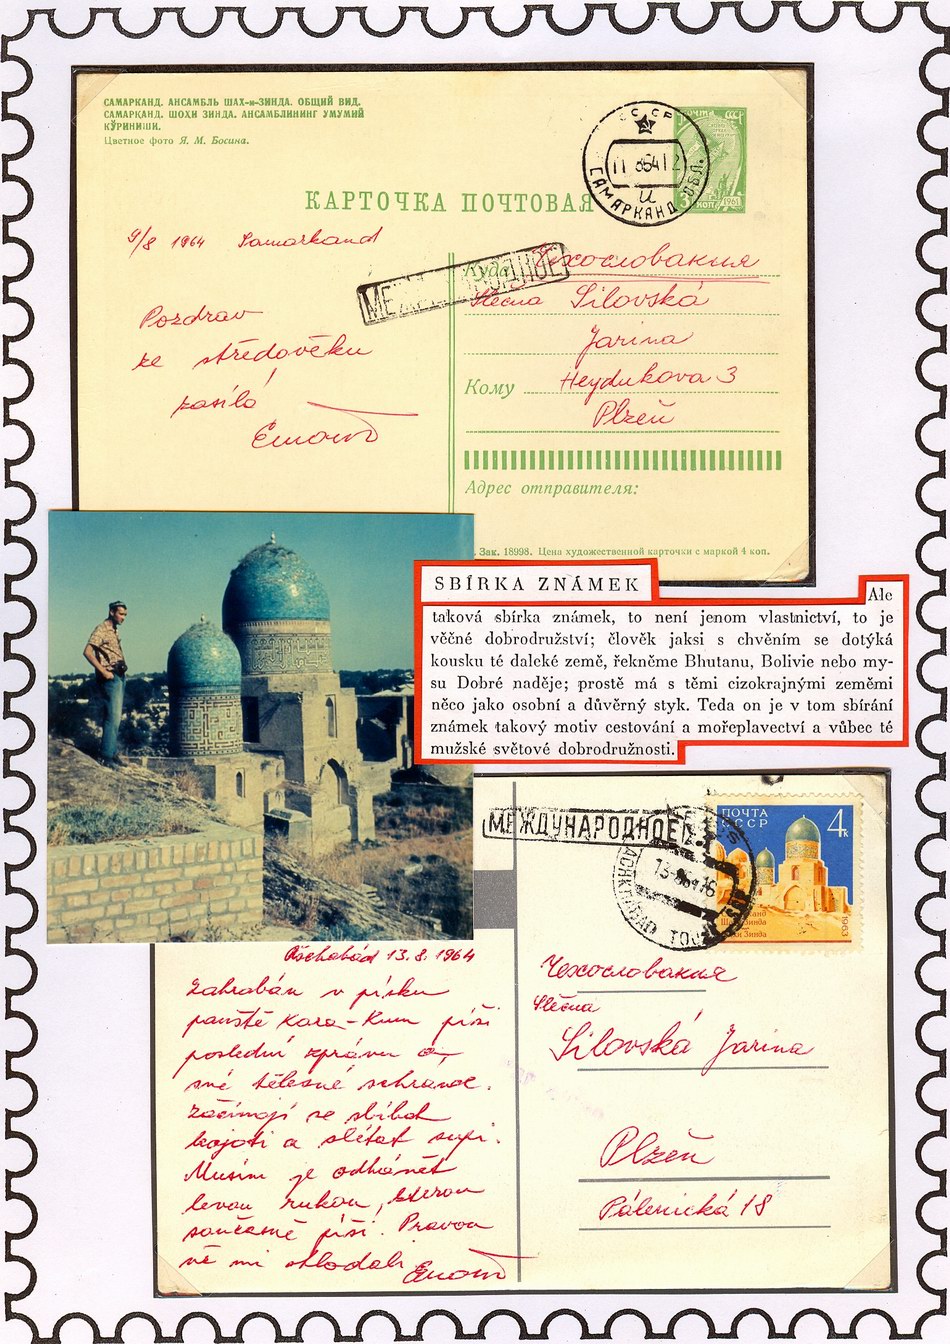 САМАРКАНД. АНСАМБЛЬ ШАХ-и-ЗИНДА. ОБЩИЙ ВИД.
САМАРҚАНД. ШОҲИ ЗИНДА. АНСАМБЛИНИНГ УМУМИЙ
КЎРИНИШИ.
Цветное фото Я. М. Босина.
СССР
САМАРКАНД ОБЛ.
и
1961
КАРТОЧКА ПОЧТОВАЯ
9/8 1964 Samarkand
Pozdrav
ke středověku
zasílá
МЕЖДУНАРОДНОЕ
Куда Чехословакия
Slečna Silovská
Jarina
Кому Heydukova 3
Plzeň
Адрес отправителя:
Зак. 18998. Цена художественной карточки с маркой 4 коп.
SBÍRKA ZNÁMEK
Ale
taková sbírka známek, to není jenom vlastnictví, to je
věčné dobrodružství; člověk jaksi s chvěním se dotýká
kousku té daleké země, řekněme Bhutanu, Bolivie nebo my-
su Dobré naděje; prostě má s těmi cizokrajnými zeměmi
něco jako osobní a důvěrný styk. Teda on je v tom sbírání
známek takový motiv cestování a mořeplavectví a vůbec té
mužské světové dobrodružnosti.
МЕЖДУНАРОДНОЕ
ПОЧТА
СССР
4к
1963
Aschabád 13.8.1964
Zahrabán v písku
pouště Kara-Kum píši
poslední zprávu o
své tělesné schránce.
Začínají se sbíhat
kojoti a slétat supi.
Musím je odhánět
levou rukou, kterou
současně píši. Pravou
už mi ohlodali
Чехословакия
Slečna
Silovská Jarina
Plzeň
Pálenická 18